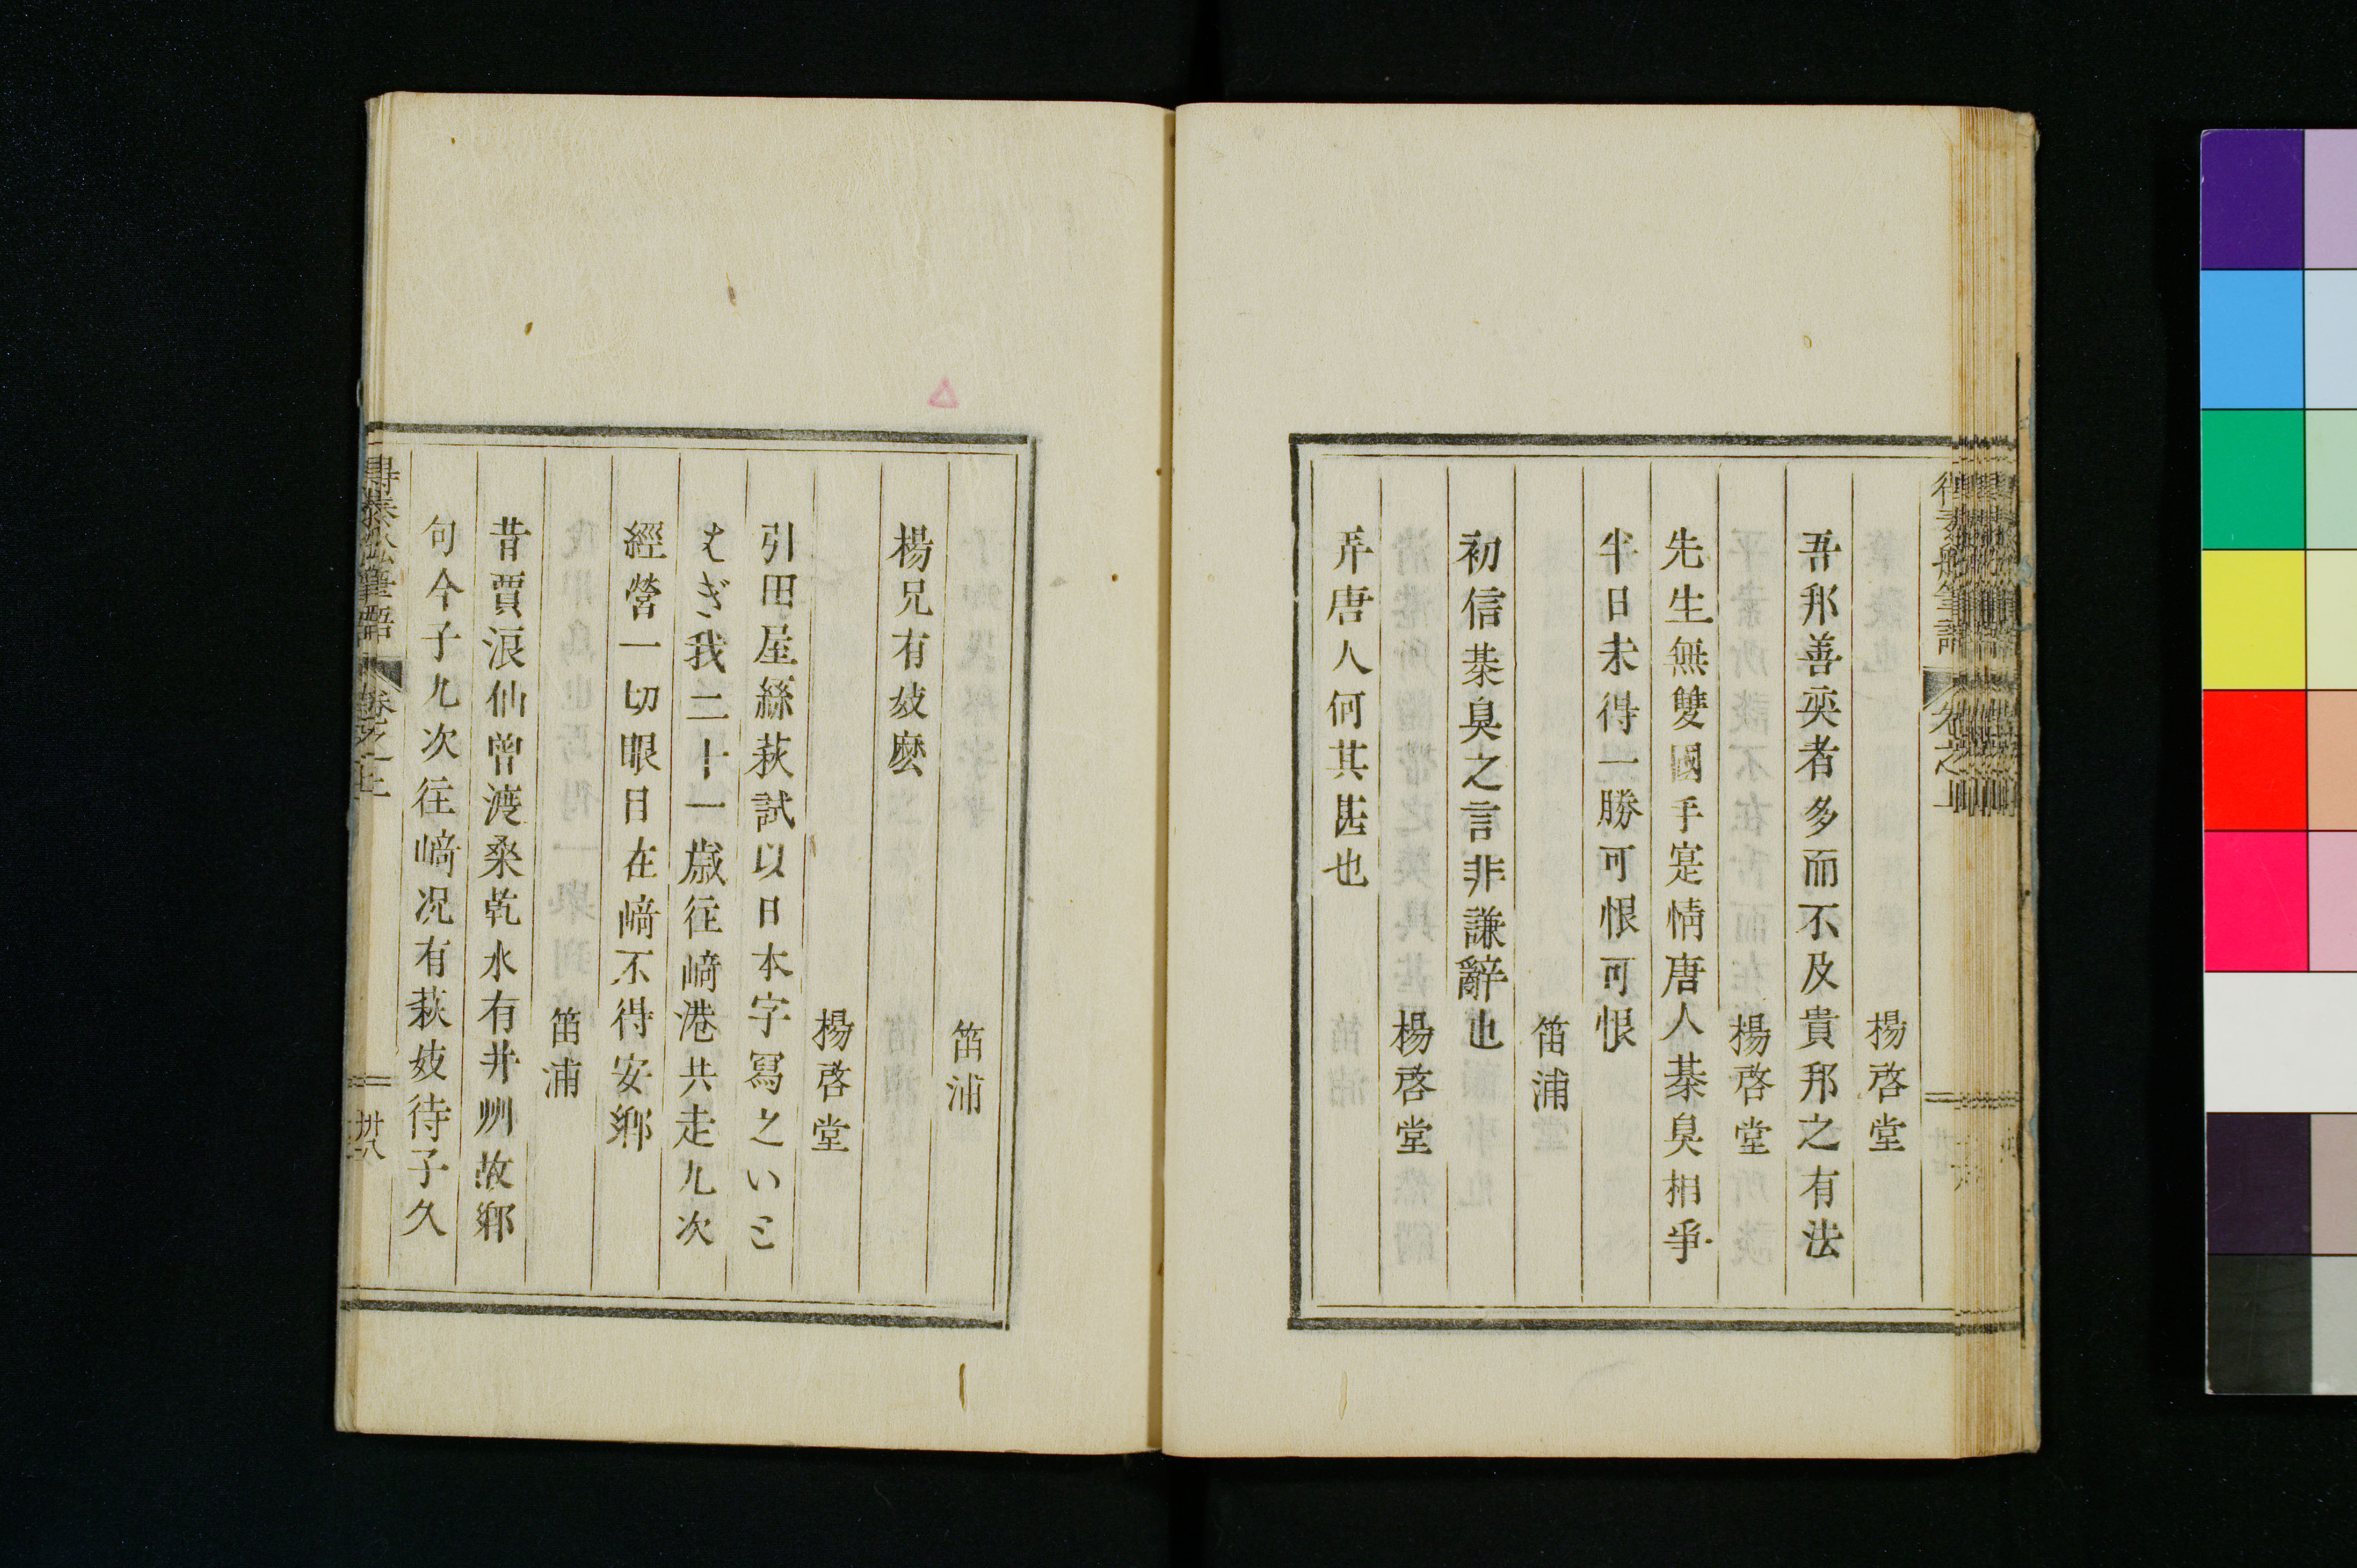 楊啓堂
吾邦善奕者多而不及貴邦之有法
楊啓堂
先生無雙國手寔情唐人棊臭相爭
半日未得一勝可恨可恨
笛浦
初信棊臭之言非謙辭也
楊啓堂
弄唐人何其甚也
笛浦
楊兄有妓麽
楊啓堂
引田屋絲萩試以日本字冩之いと
はぎ我二十一歳往﨑港共走九次
經營一切眼目在﨑不得安鄉
笛浦
昔賈浪仙曾渡桑乾水有并州故鄉
句今子九次往﨑况有萩妓待子久
得泰船筆語 卷之上 卅八